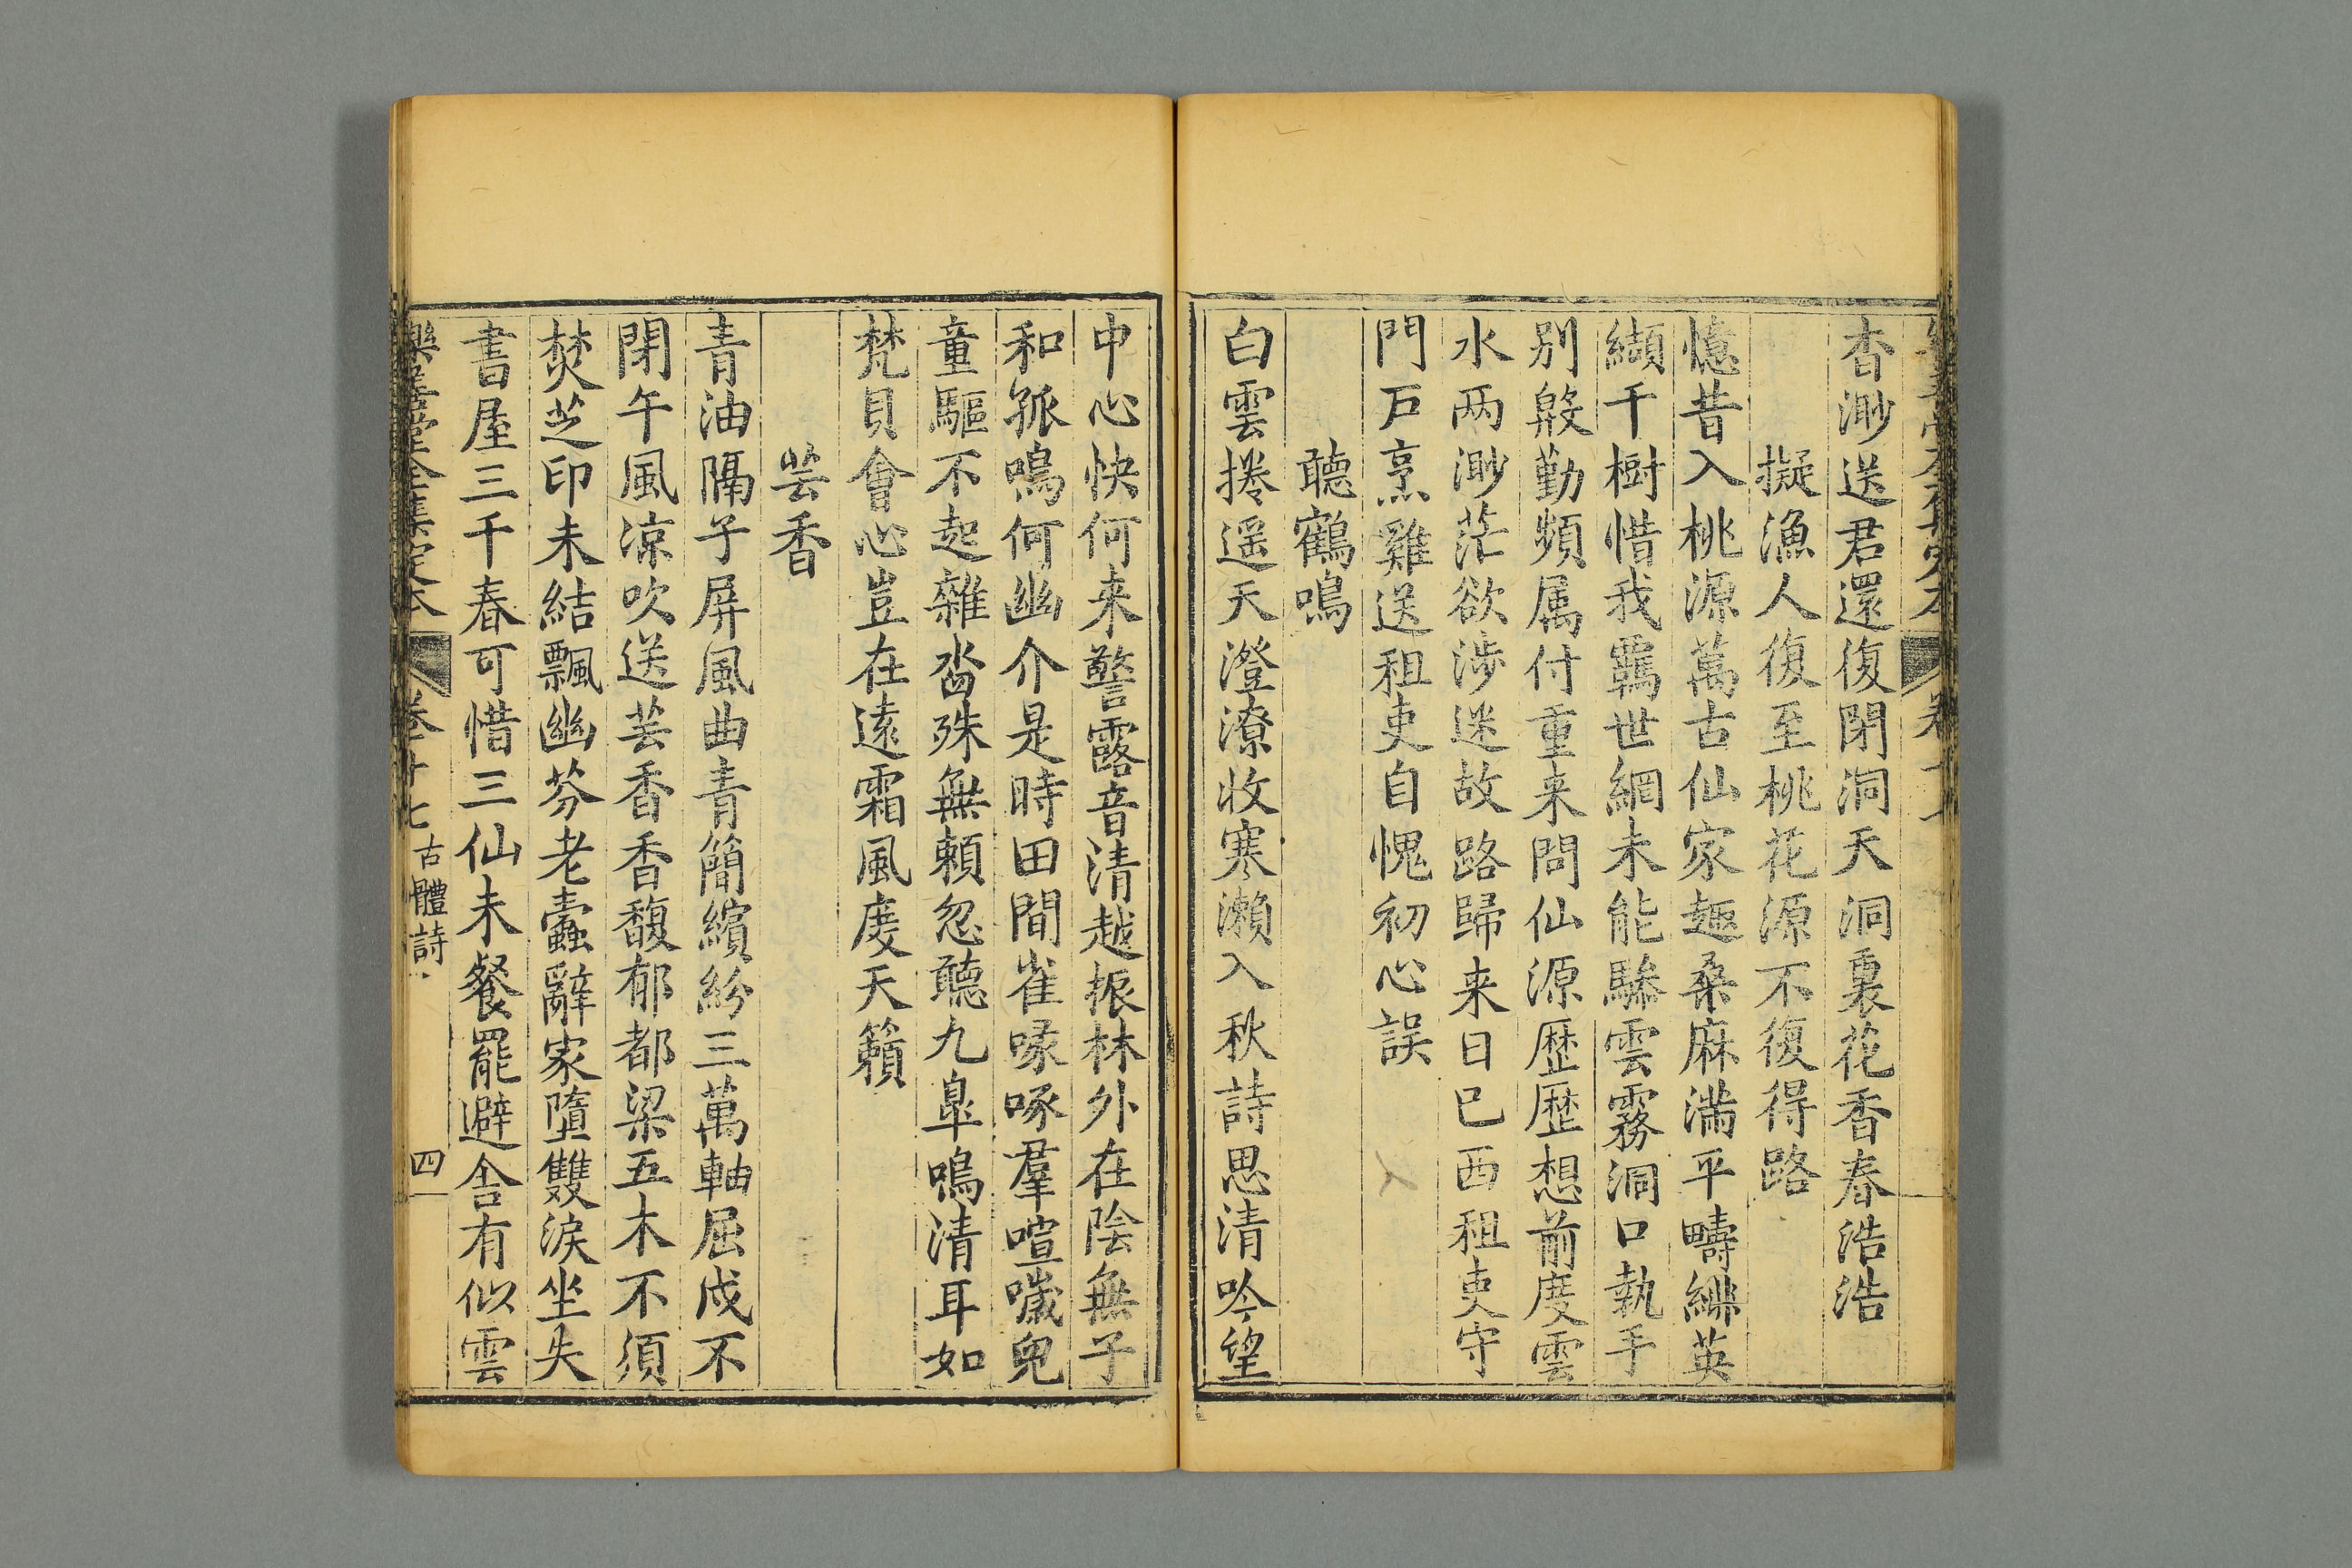 杳渺送君還復閉洞天洞裏花香春浩浩
擬漁人復至桃花源不復得路
憶昔入桃源萬古仙家趣桑麻滿平疇緋英
纈千樹惜我羈世網未能驂雲霧洞口執手
別殷勤頻属付重来問仙源歴歴想前度雲
水两渺茫欲涉迷故路歸来日已西租吏守
門戸烹雞送租吏自愧初心誤
聽鶴鳴
白雲捲遥天澄潦收寒瀨入秋詩思清吟望
中心快何来警露音清越振林外在陰無子
和孤鳴何幽介是時田間雀啄啄羣喧噦兒
童驅不起雜沓殊無頼忽聽九臯鳴清耳如
梵貝會心豈在遠霜風度天籟
芸香
青油隔子屏風曲青簡繽紛三萬軸屈戍不
閉午風涼吹送芸香香馥郁都梁五木不須
焚芝印未結飄幽芬老蠹辭家墮雙淚坐失
書屋三千春可惜三仙未餐罷避舍有似雲
樂善堂全集定本 卷十七 古體詩 四